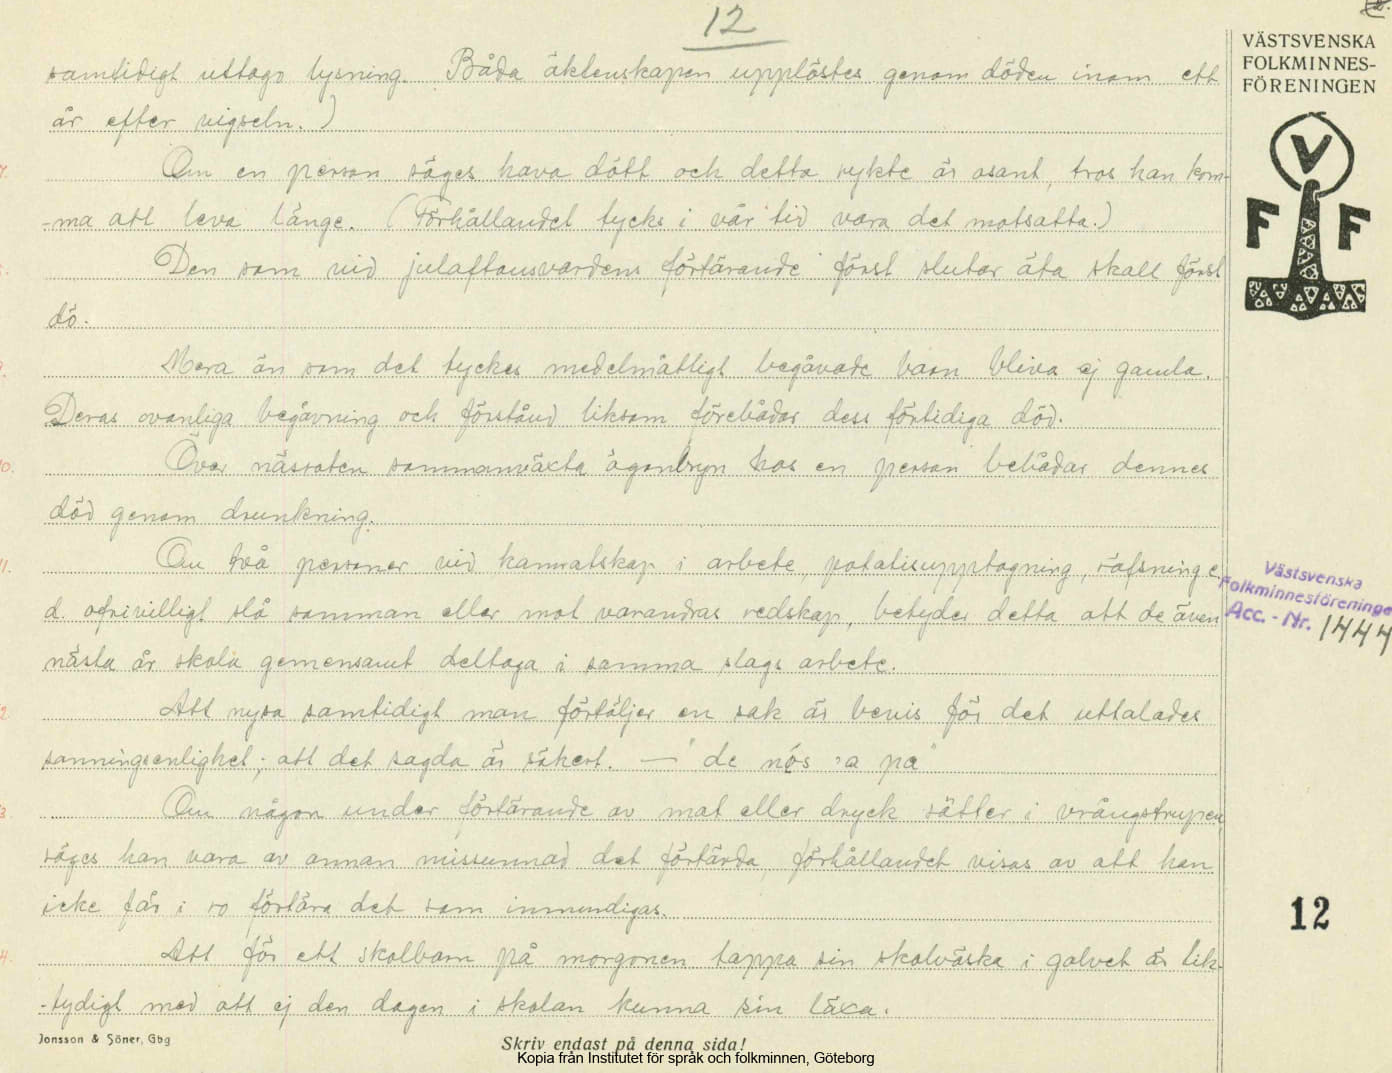 12
samtidigt uttogo lysning. Båda äktenskapen upplöstes genom döden inom ett
år efter vigseln.)
7.
Om en person säges hava dött och detta rykte är osant, tros han kom-
-ma att leva länge. (Förhållandet tycks i vår tid vara det motsatta.)
Den som vid julaftonsvardens förtärande först slutar äta skall först
dö.
9.
Mera än som det tyckes medelmåttligt begåvade barn bliva ej gamla.
Deras ovanliga begåvning och förstånd liksom förebådar dess förtidiga död.
10.
Över näsroten sammanväxta ögonbryn hos en person bebådar dennes
död genom drunkning.
11.
Om två personer vid kamratskap i arbete, potatisupptagning, räfsning e.
d. ofrivilligt slå samman eller mot varandras redskap, betyder detta att de även
nästa år skola gemensamt deltaga i samma slags arbete.
2.
Att nysa samtidigt man förtäljer en sak är bevis för det uttalades
sanningsenlighet; att det sagda är säkert. — "de nös 'a på"
3.
Om någon under förtärande av mat eller dryck sätter i vrångstrupen
säges han vara av annan missunnad det förtärda, förhållandet visas av att han
icke får i ro förtära det som inmundigas.
4.
Att för ett skolbarn på morgonen tappa sin skolväska i golvet är lik-
-tydigt med att ej den dagen i skolan kunna sin läxa.
VÄSTSVENSKA
FOLKMINNES-
FÖRENINGEN
V
F F
Västsvenska
Folkminnesföreninge
Acc. - Nr. 1444
12
Jonsson & Söner, Gbg
Skriv endast på denna sida!
Kopia från Institutet för språk och folkminnen, Göteborg